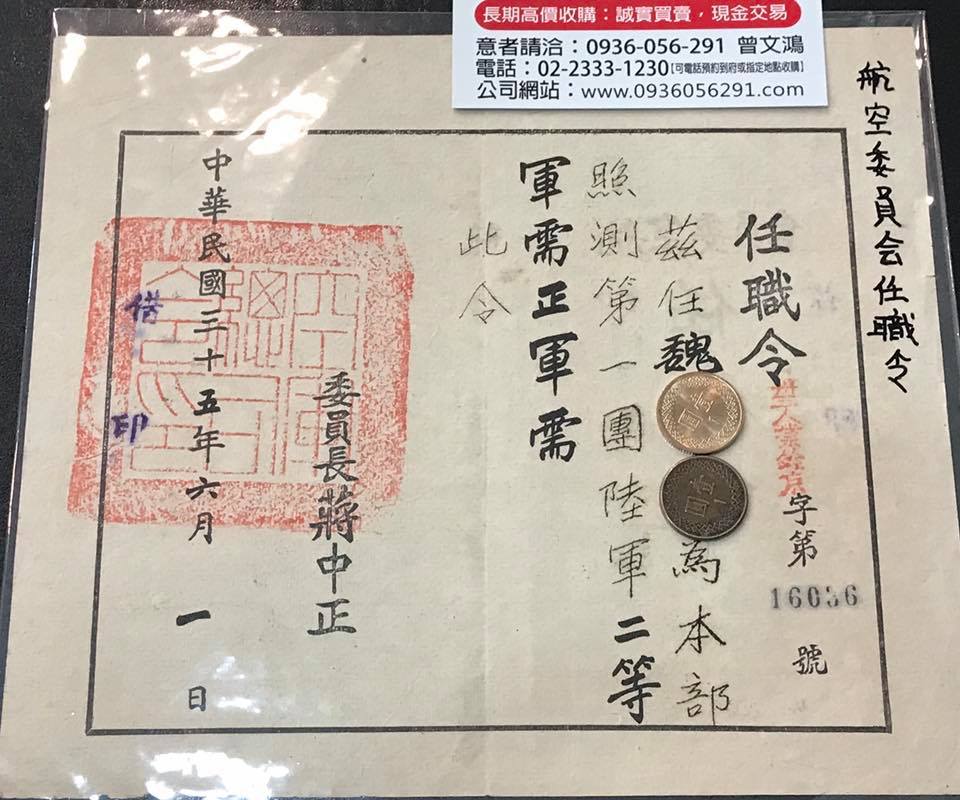 長期高價收購：誠實買賣，現金交易
意者請洽：0936-056-291 曾文鴻
電話：02-2333-1230【可電話預約到府或指定地點收購】
公司網站：www.0936056291.com
航空委員会任職令
字第
號
任職令
茲任魏
為本部
照測第一團陸軍二等
軍需正軍需
此令
委員長蔣中正
中華民國三十五年六月一日
借印
壹圓
壹圓